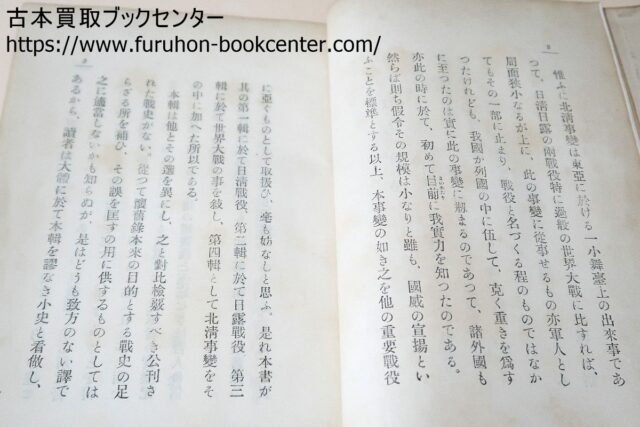 古本買取ブックセンター
https://www.furuhon-bookcenter.com/
2
惟ふに北淸事變は東亞に於ける一小舞臺上の出來事であ
つて、日淸日露の兩戰役特に過般の世界大戰に比すれば、
局面狹小なるが上に、此の事變に從事せるもの亦軍人とし
てもその一部に止まり、戰役と名づくる程のものではなか
つたけれども、我國が列國の中に伍して、克く重きを爲す
に至つたのは實に此の事變に刱まるのであつて、諸外國も
亦此の時に於て、初めて目前に我實力を知つたのである。
まのあたり
然らば則ち假令その規模は小なりと雖も、國威の宣揚とい
ふことを標準とする以上、本事變の如き之を他の重要戰役
3
に亞ぐものとして取扱ひ、毫も妨なしと思ふ。是れ本書が
其の第一輯に於て日淸戰役、第二輯に於て日露戰役、第三
輯に於て世界大戰の事を絞し、第四輯として北淸事變をそ
の中に加へた所以である。
本輯は他とその選を異にし、之と對比檢覈すべき公刊さ
れた戰史がない。從つて懷舊錄本來の目的とする戰史の足
らざる所を補ひ、その誤を匡すの用に供するものとしては
之に適當しないかも知らぬが、是はどうも致方のない譯で
あるから、讀者は大體に於て本輯を謬なき小史と看做し、